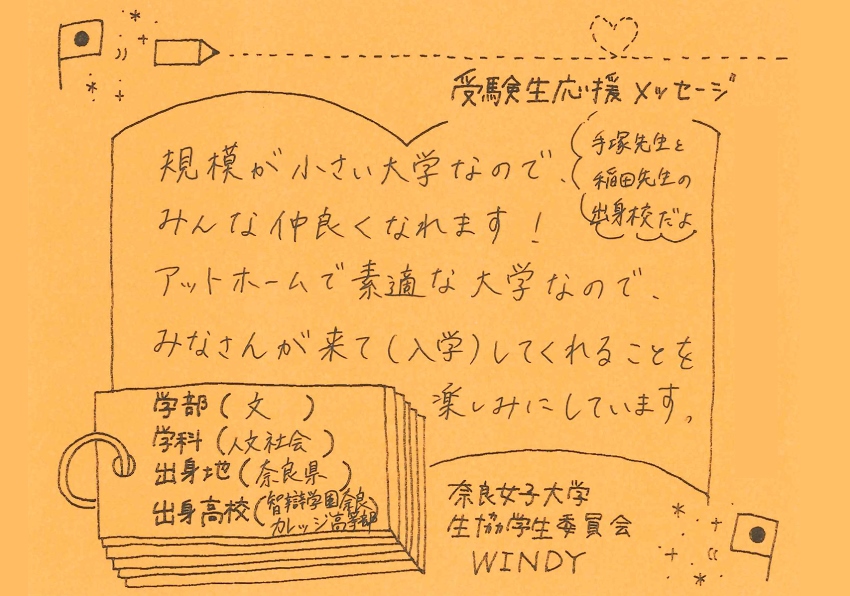 受験生応援メッセージ
規模が小さい大学なので、
手塚先生と
稲田先生の
出身校だよ
みんな仲良くなれます！
アットホームで素適な大学なので、
みなさんが来て(入学)してくれることを
楽しみにしています。
学部(文)
学科(人文社会)
出身地(奈良県)
出身高校(智辯学園奈良
カレッジ高等部)
奈良女子大学
生協学生委員会
WINDY